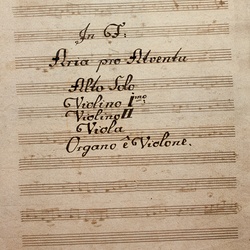 In F:
Aria pro Adventu
Alto Solo
Violino Imo:
Violino II
Viola
Organo è Violone.